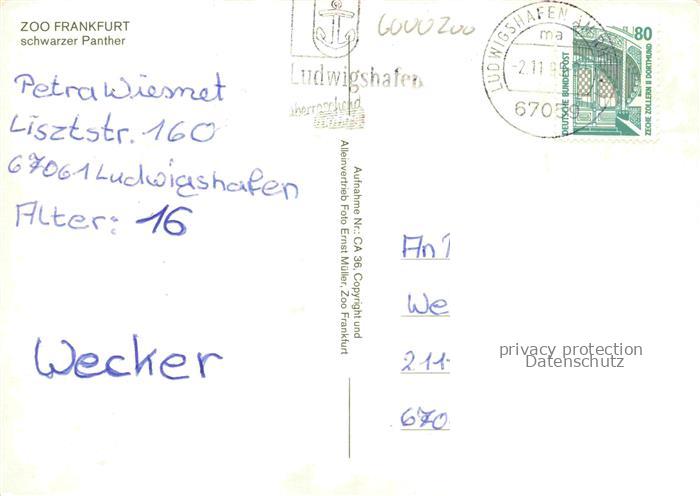 ZOO FRANKFURT
schwarzer Panther
Petra Wiesmet
Lisztstr. 160
67061 Ludwigshafen
Alter: 16
Wecker
Ludwigshafen
überraschend
6000200
LUDWIGSHAFEN AM
ma
-2.11.9
67059
80
DEUTSCHE BUNDESPOST
ZECHE ZOLLERN II DORTMUND
Aufnahme Nr.: CA 36, Copyright und
Alleinvertrieb Foto Ernst Müller, Zoo Frankfurt
An
We
211
670
privacy protection
Datenschutz